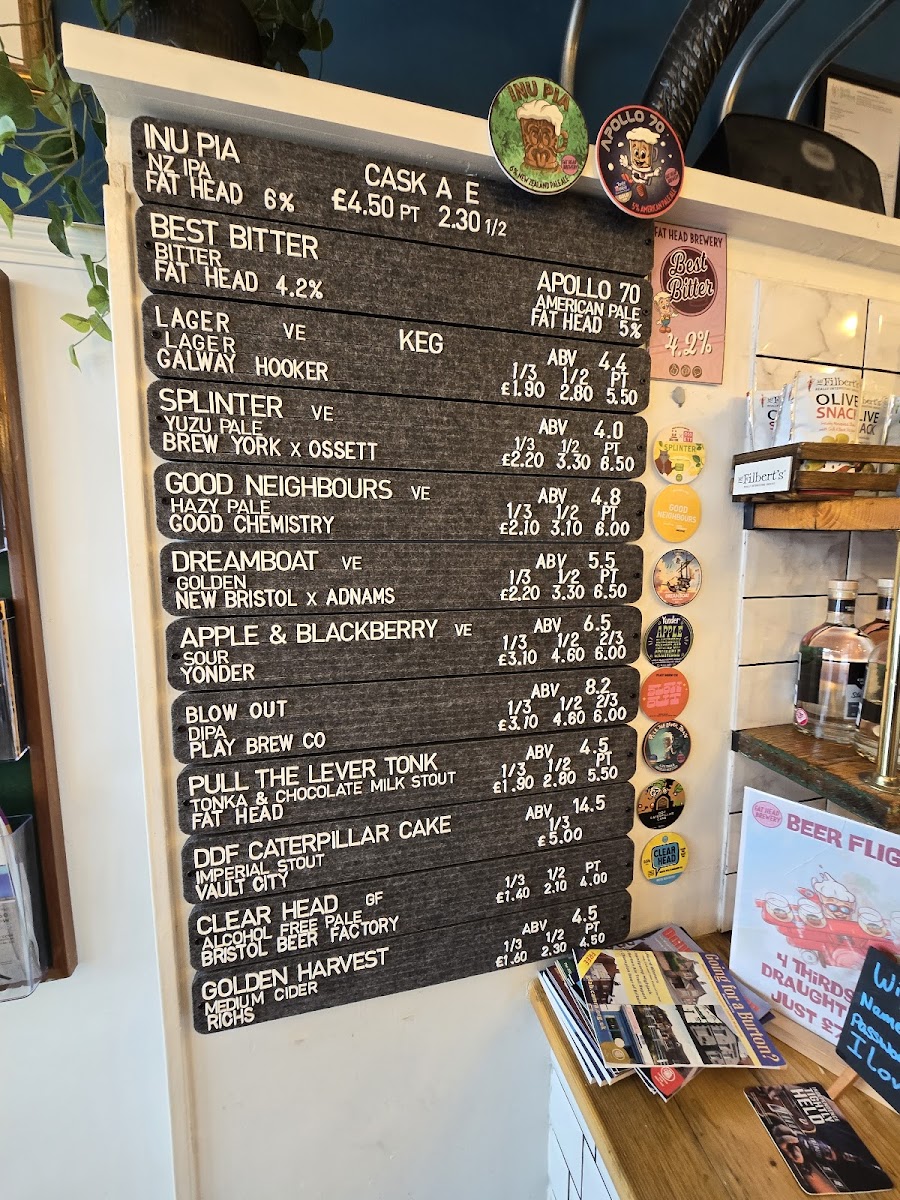 INU PIA
NZ IPA
FAT HEAD 6%
CASK A E
£4.50 PT 2.30 1/2
BEST BITTER
BITTER
FAT HEAD 4.2%
APOLLO 70
AMERICAN PALE
FAT HEAD 5%
LAGER VE
LAGER
GALWAY HOOKER
KEG
ABV 4.4
1/3 1/2 PT
£1.90 2.80 5.50
SPLINTER VE
YUZU PALE
BREW YORK X OSSETT
ABV 4.0
1/3 1/2 PT
£2.20 3.30 6.50
GOOD NEIGHBOURS VE
HAZY PALE
GOOD CHEMISTRY
ABV 4.8
1/3 1/2 PT
£2.10 3.10 6.00
DREAMBOAT VE
GOLDEN
NEW BRISTOL X ADNAMS
ABV 5.5
1/3 1/2 PT
£2.20 3.30 6.50
APPLE & BLACKBERRY VE
SOUR
YONDER
ABV 6.5
1/3 1/2 2/3
£3.10 4.60 6.00
BLOW OUT
DIPA
PLAY BREW CO
ABV 8.2
1/3 1/2 2/3
£3.10 4.60 6.00
PULL THE LEVER TONK
TONKA & CHOCOLATE MILK STOUT
FAT HEAD
ABV 4.5
1/3 1/2 PT
£1.90 2.80 5.50
DDF CATERPILLAR CAKE
IMPERIAL STOUT
VAULT CITY
ABV 14.5
1/3
£5.00
CLEAR HEAD GF
ALCOHOL FREE PALE
BRISTOL BEER FACTORY
1/3 1/2 PT
£1.40 2.10 4.00
GOLDEN HARVEST
MEDIUM CIDER
RICHS
ABV 4.5
1/3 1/2 PT
£1.60 2.30 4.50
INU PIA
6% NEW ZEALAND PALE ALE
APOLLO 70
5% AMERICAN PALE
FAT HEAD BREWERY
Best
Bitter
4.2%
SPLINTER
GOOD
NEIGHBOURS
Yonder
APPLE
CLEAR
HEAD
Mr Filbert's
OLIVE
SNACK
OLIVE
SNA
Mr Filbert's
FAT HEAD
BREWERY
BEER FLIG
4 THIRDS
DRAUGHT
JUST £7
Wi
Name
Passwo
I Lov
Going for a Burton?
TIGHTLY
HELD